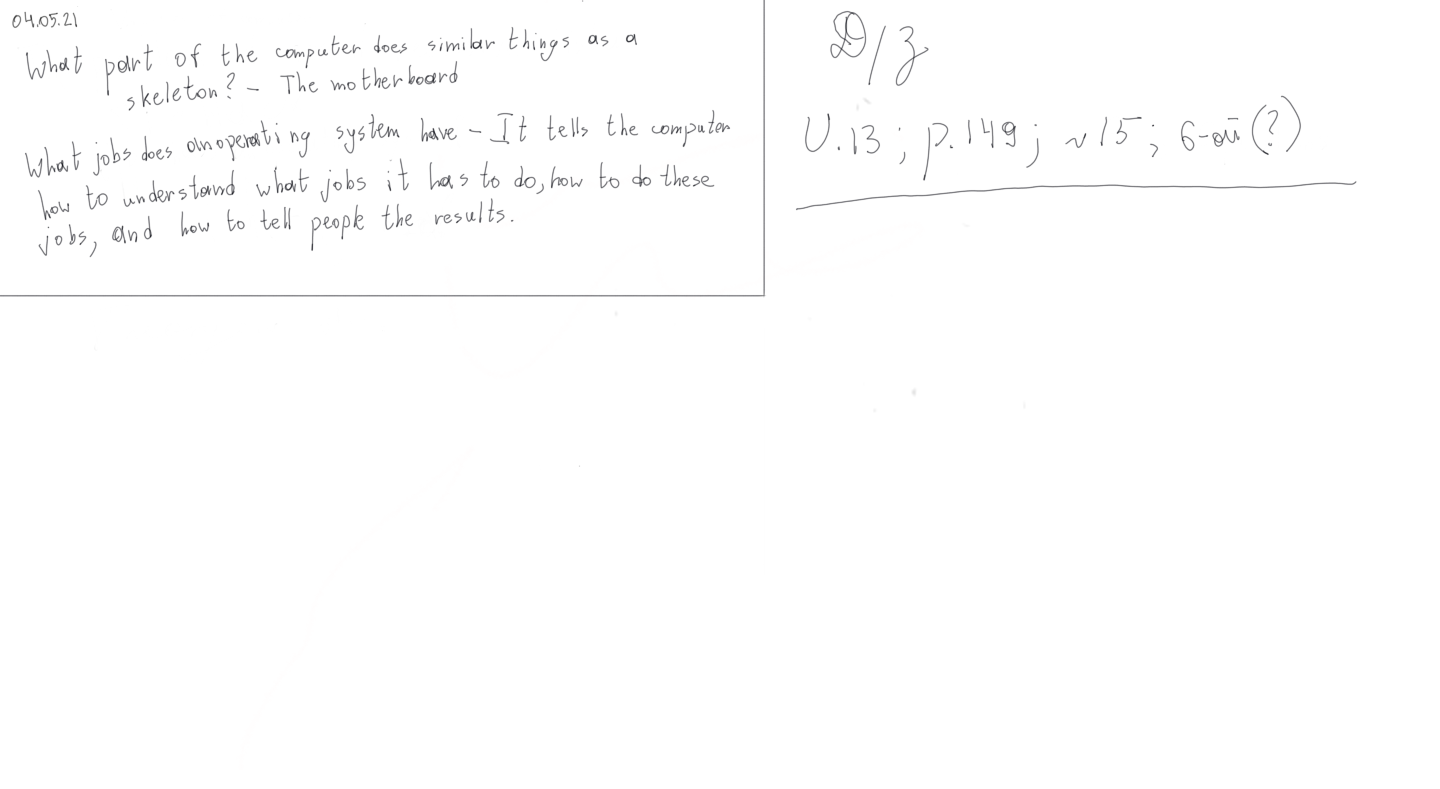 04.05.21
What part of the computer does similar things as a
skeleton? – The motherboard
What jobs does an operating system have – It tells the computer
how to understand what jobs it has to do, how to do these
jobs, and how to tell people the results.
Д/з
U.13; p.149; ~15; 6-ой (?)